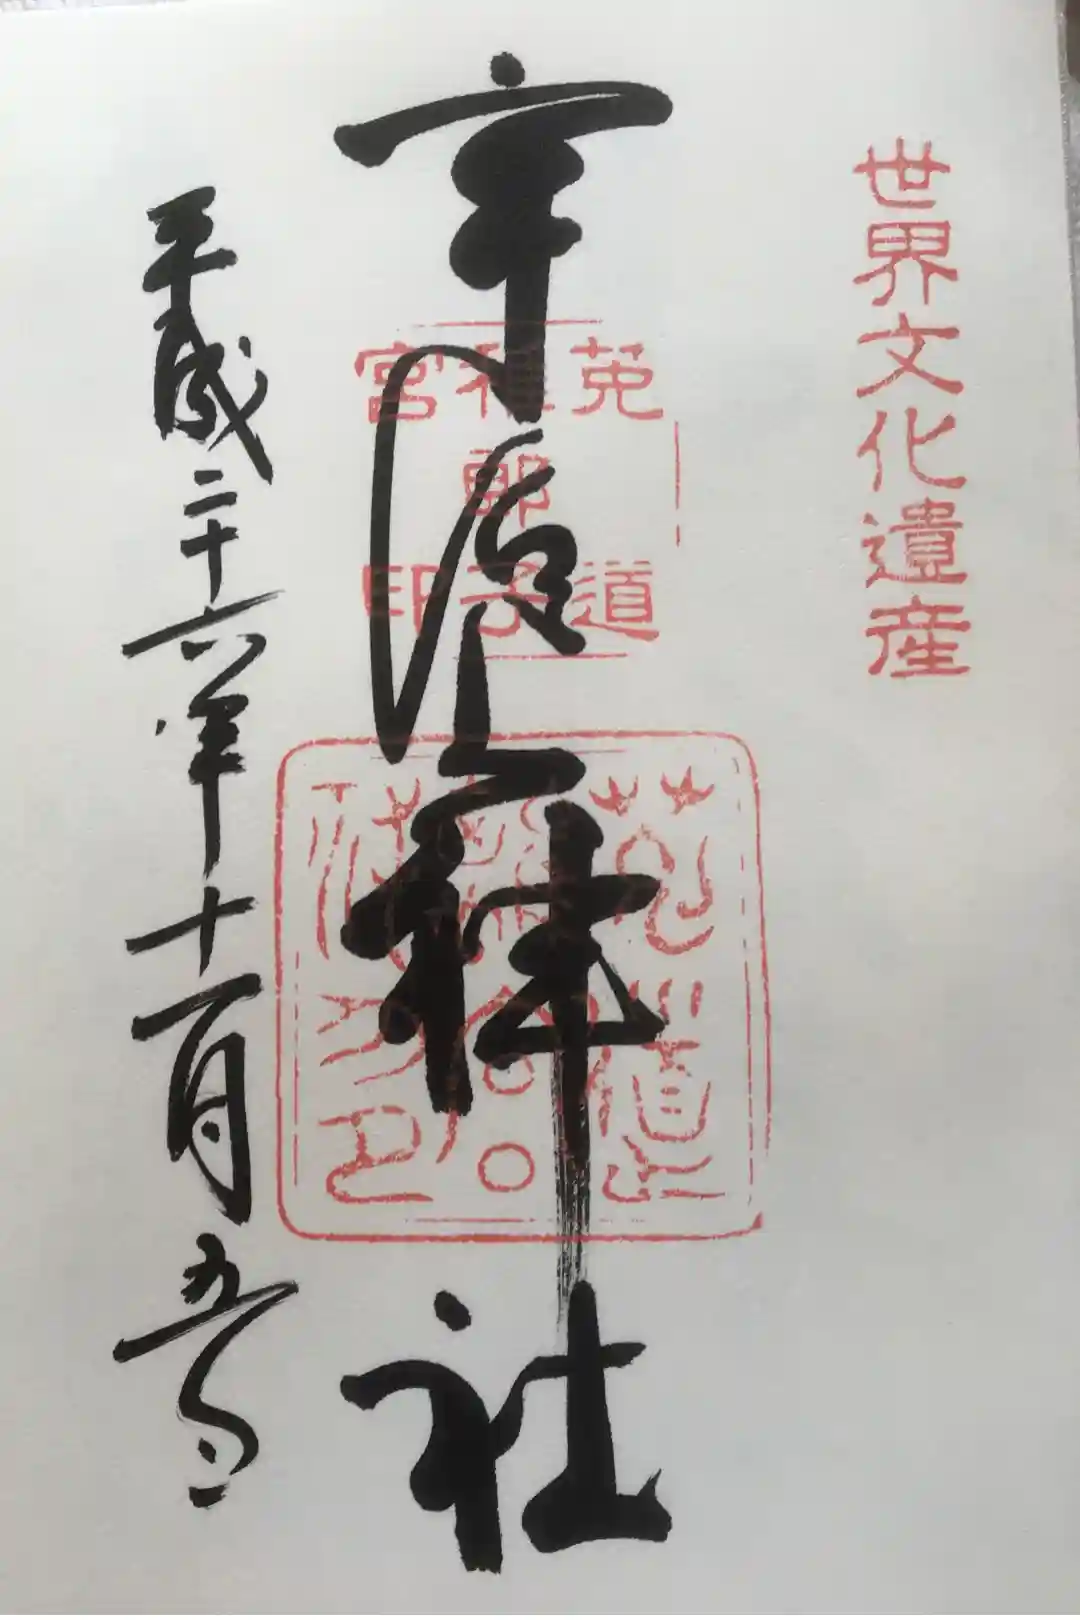 世界文化遺産
宇治上神社
菟道
稚郎子
宮印
菟道
平成二十六年十一月五日